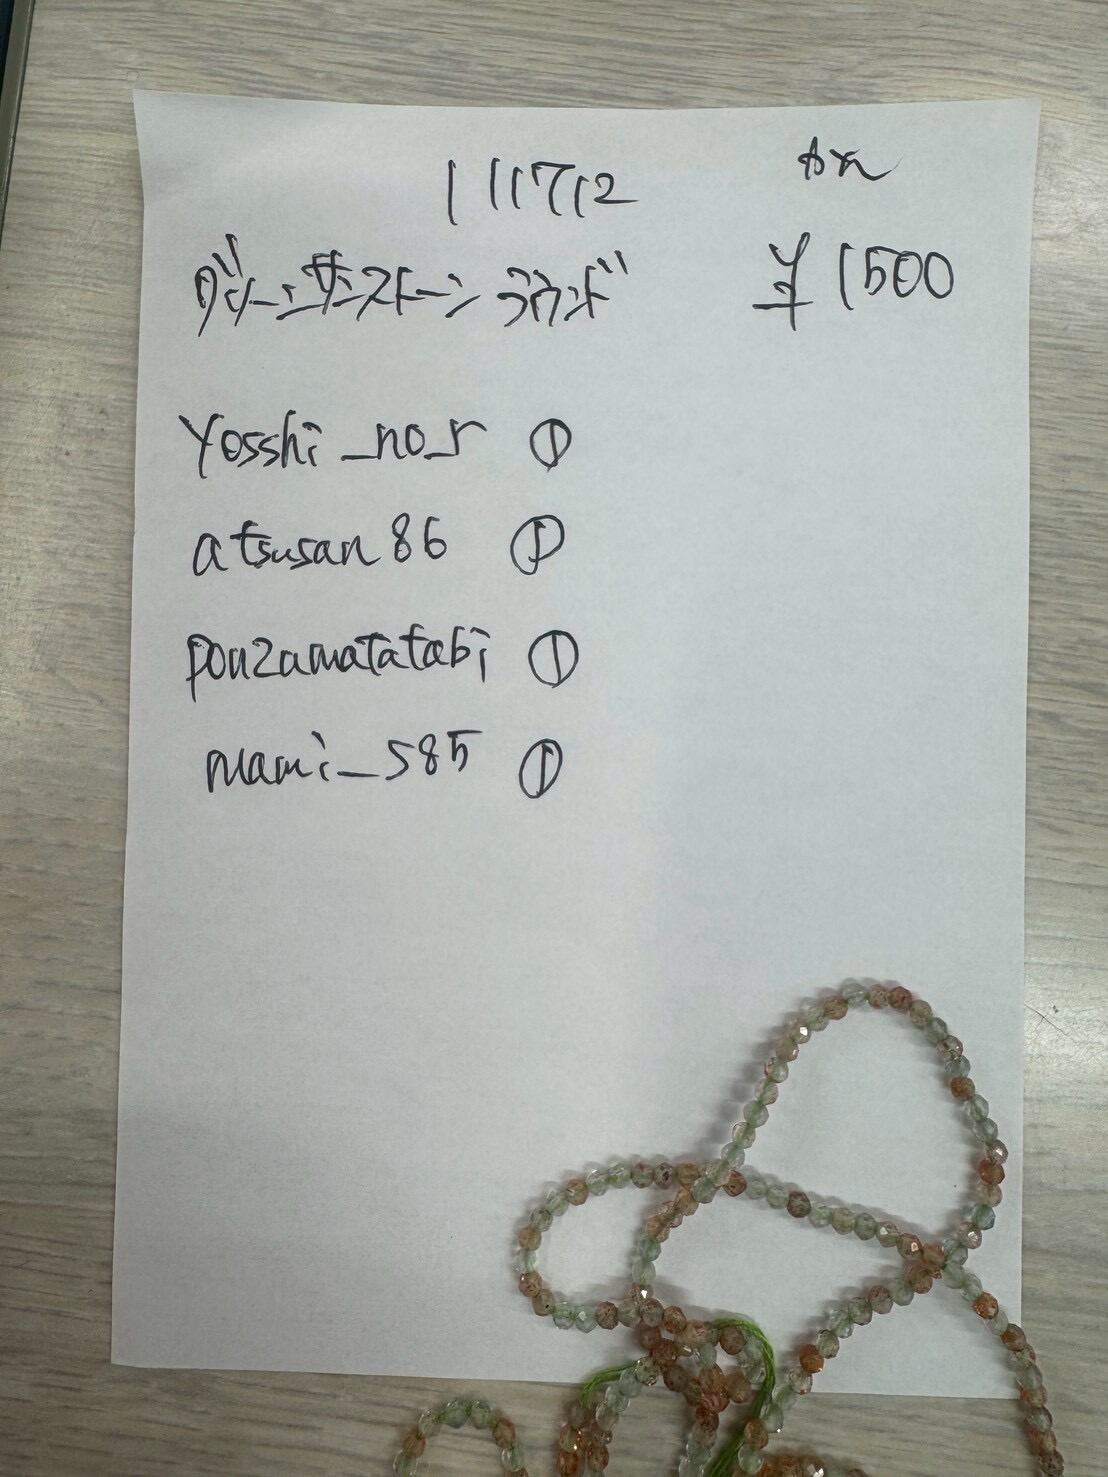 111712
グリーンサンストーン ラウンド ¥1500
Yosshi_no_r ①
atsusan86 ①
ponzamatatabi ①
mami_s85 ①